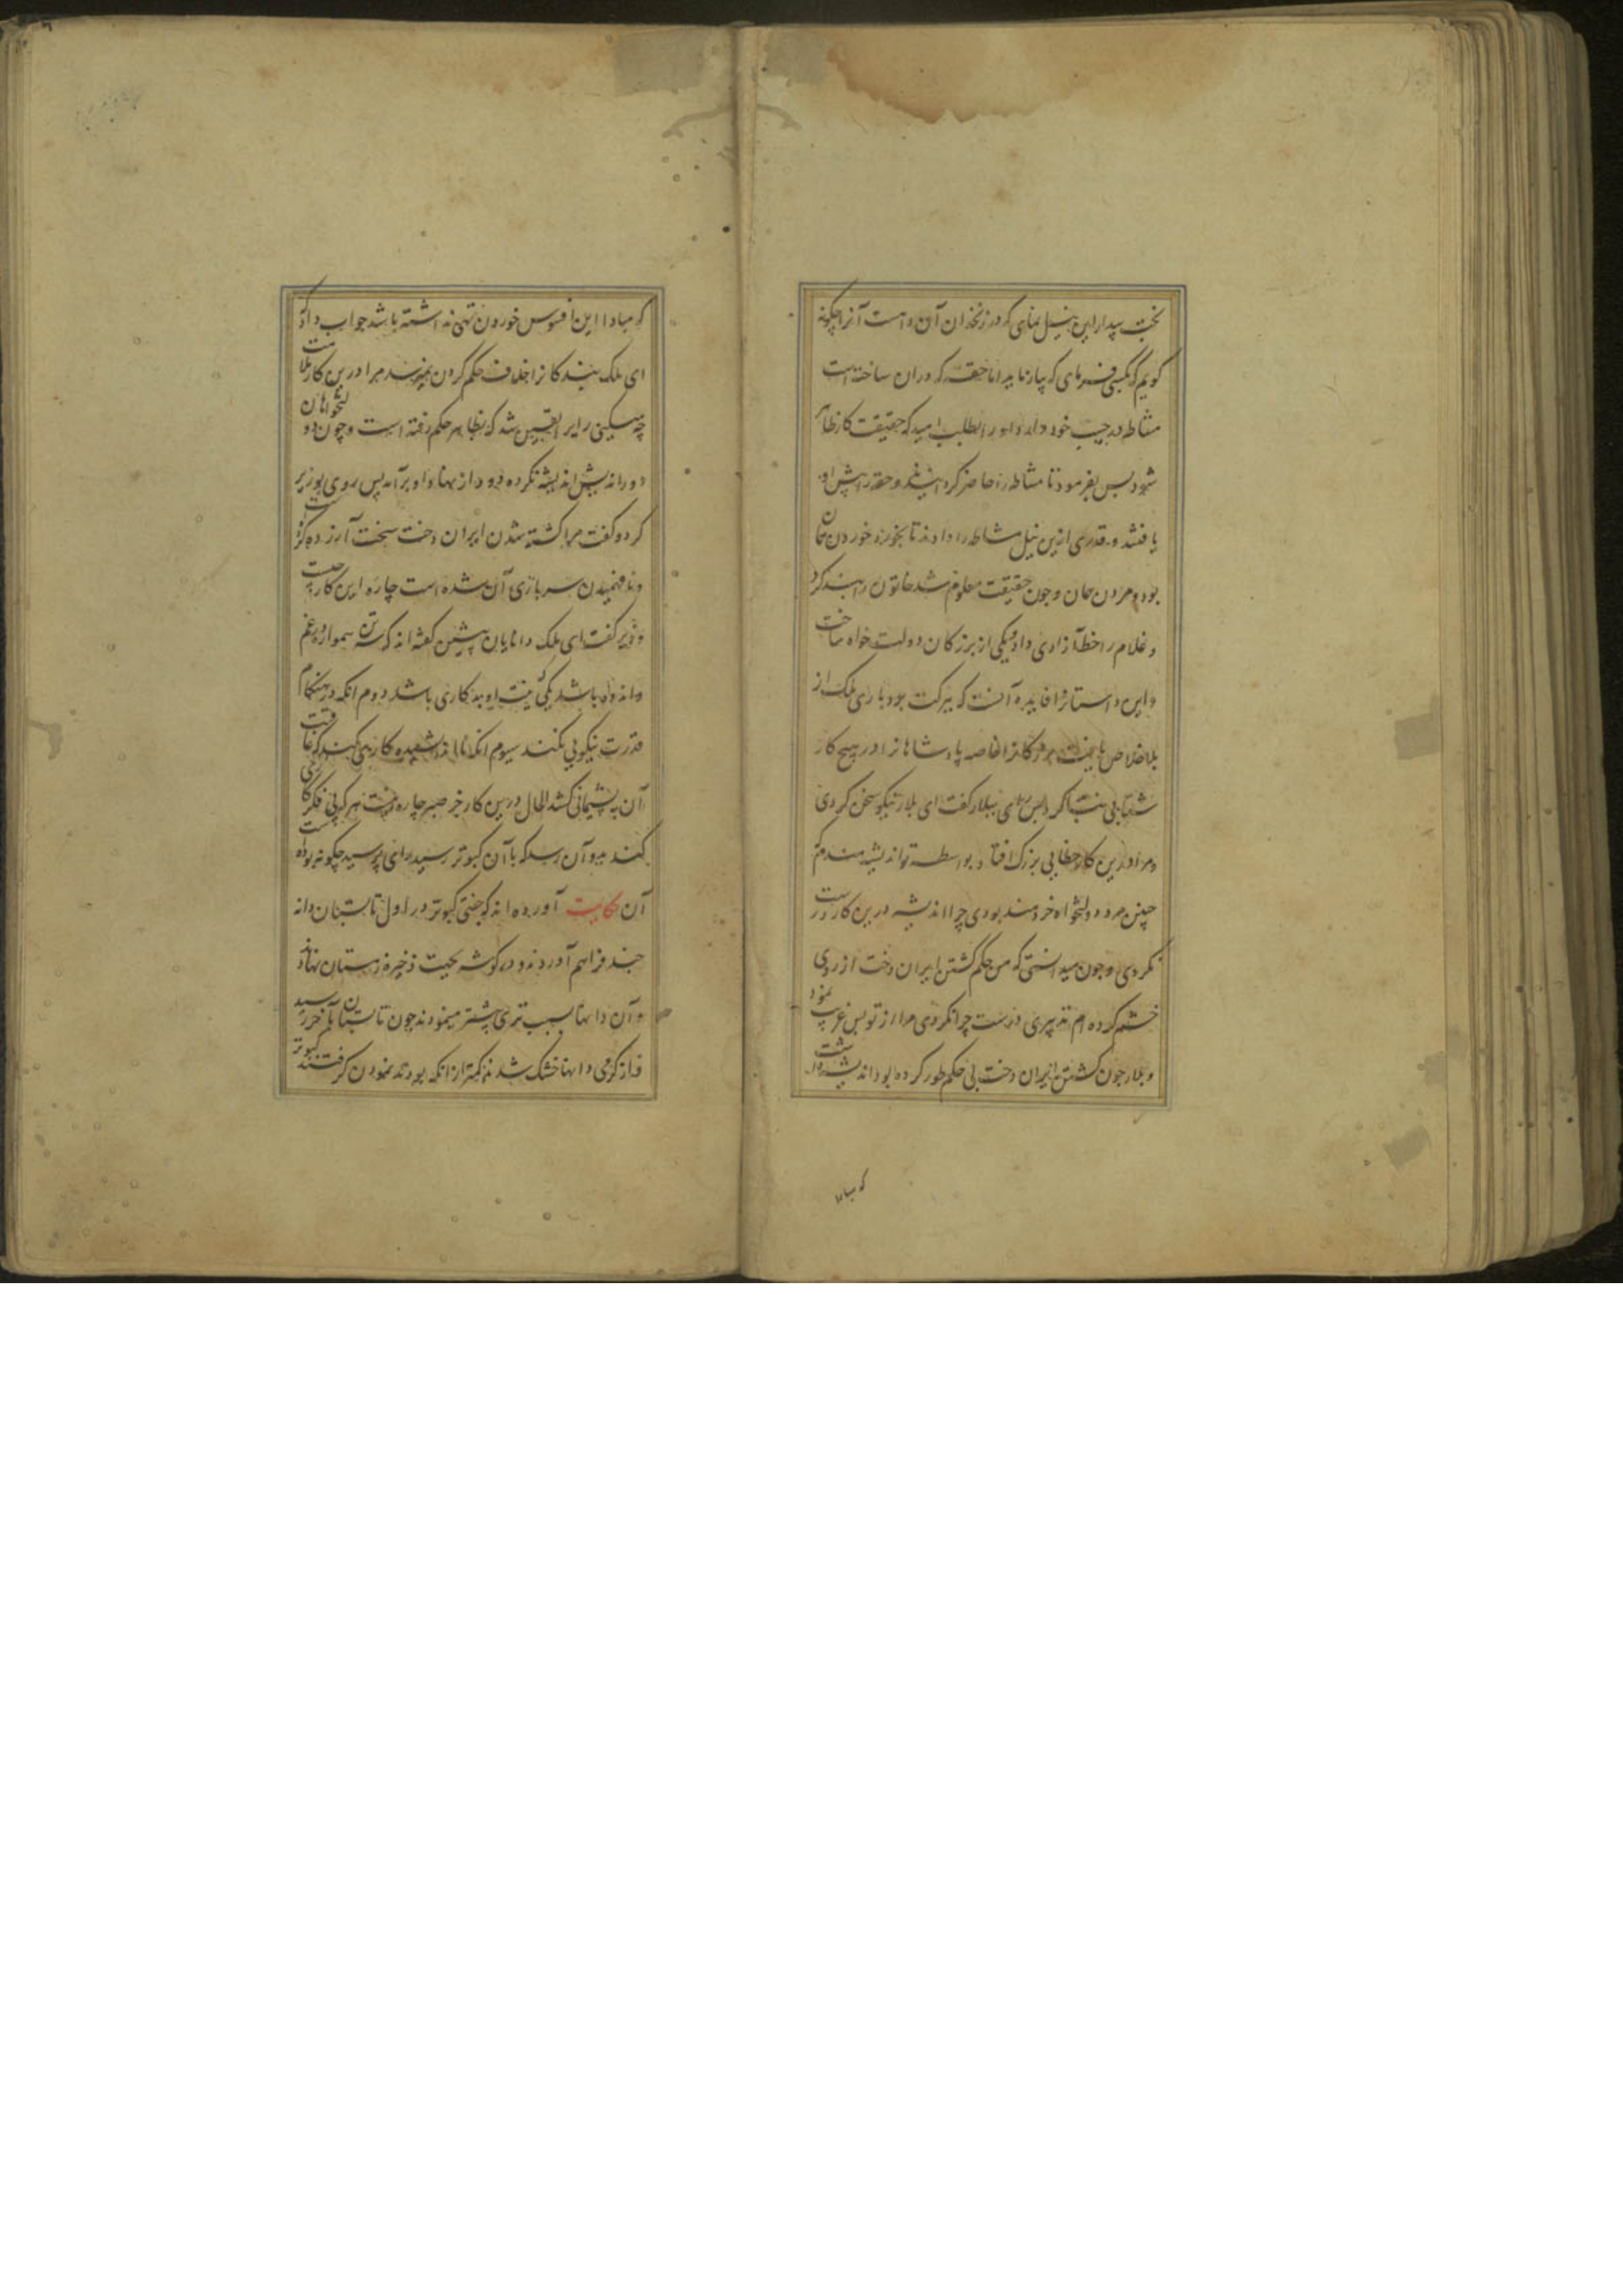 بخت بیدار این نیل بنمای که در زنخدان آن است آنرا چگونه
گویم که بکسی فرمای که بیارند اما حقه که دران ساخته است
مشاطه در جیب خود دارد او را طلب امید که حقیقت کار ظاهر
شود پس بفرمود تا مشاطه را حاضر کردانیدند و حقه را پیش او
یافتند و قدری ازین نیل مشاطه را دادند تا بخورد خوردن همان
بود و مردن همان و چون حقیقت معلوم شد خاتون را بند کرد
و غلام را خط آزادی داد و یکی از بزرکان دولت خواه ساخت
و این داستانرا فایده آنست که ببرکت بود با رای ملک از
بلا خلاص یافت خاصه پادشاهانرا در هیچ کار
شتابی نباید کرد پس رای ببلار گفت ای بلار نیکو سخن کردی
و مرا درین کار خطایی بزرگ افتاد بواسطه تو اندیشه مندم
چنین مرد دولتخواه خردمند بودی چرا اندیشه درین کار درست
نکردی و چون میدانستی که من حکم کشتن ایران دخت از روی
خشم کرده ام تدبیری درست چرا نکردی مرا از تو بس غریب نمود
و بلار چون کشتن ایران دخت بی حکم طور کرده بود اندیشه داشت
که مبادا
که مبادا این افسوس خوردن تهی نداشته باشد جواب داد که
ای ملک بندکانرا خلاف حکم کردن نمیرسد مرا درین کار ملامت
چه میکنی رای را یقین شد که بظاهر حکم رفته است و چون دولتخواهان
دوراندیش اندیشه نکرده دود از نهاد او برآمد پس روی بوزیر
کرد و گفت مرا کشته شدن ایران دخت سخت آزرده کرد
و نافهمیدن سربازی آن شده است چاره این کار چیست
وزیر گفت ای ملک دانایان پیشین گفته اند که سه تن همواره در غم
و اندوه باشد یکی نیت او بدکاری باشد دوم انکه در هنگام
قدرت نیکویی نکند سیوم انکه نااندیشیده کاری کند که عاقبت
آن به پشیمانی کشد الحال درین کار جز صبر چاره نیست هر که بی فکر کاری
کند بدو آن رسد که با آن کبوتر رسید رای پرسید چگونه بوده است
آن حکایت آورده اند که جفتی کبوتر در اول تابستان دانه
چند فراهم آوردند و در گوشه بجهت ذخیره زمستان نهادند
و آن دانها بسبب تری بیشتر مینمودند چون تابستان بآخر رسید
و از گرمی دانها خشک شدند کمتر از انکه بودند نمودن گرفتند کبوتر